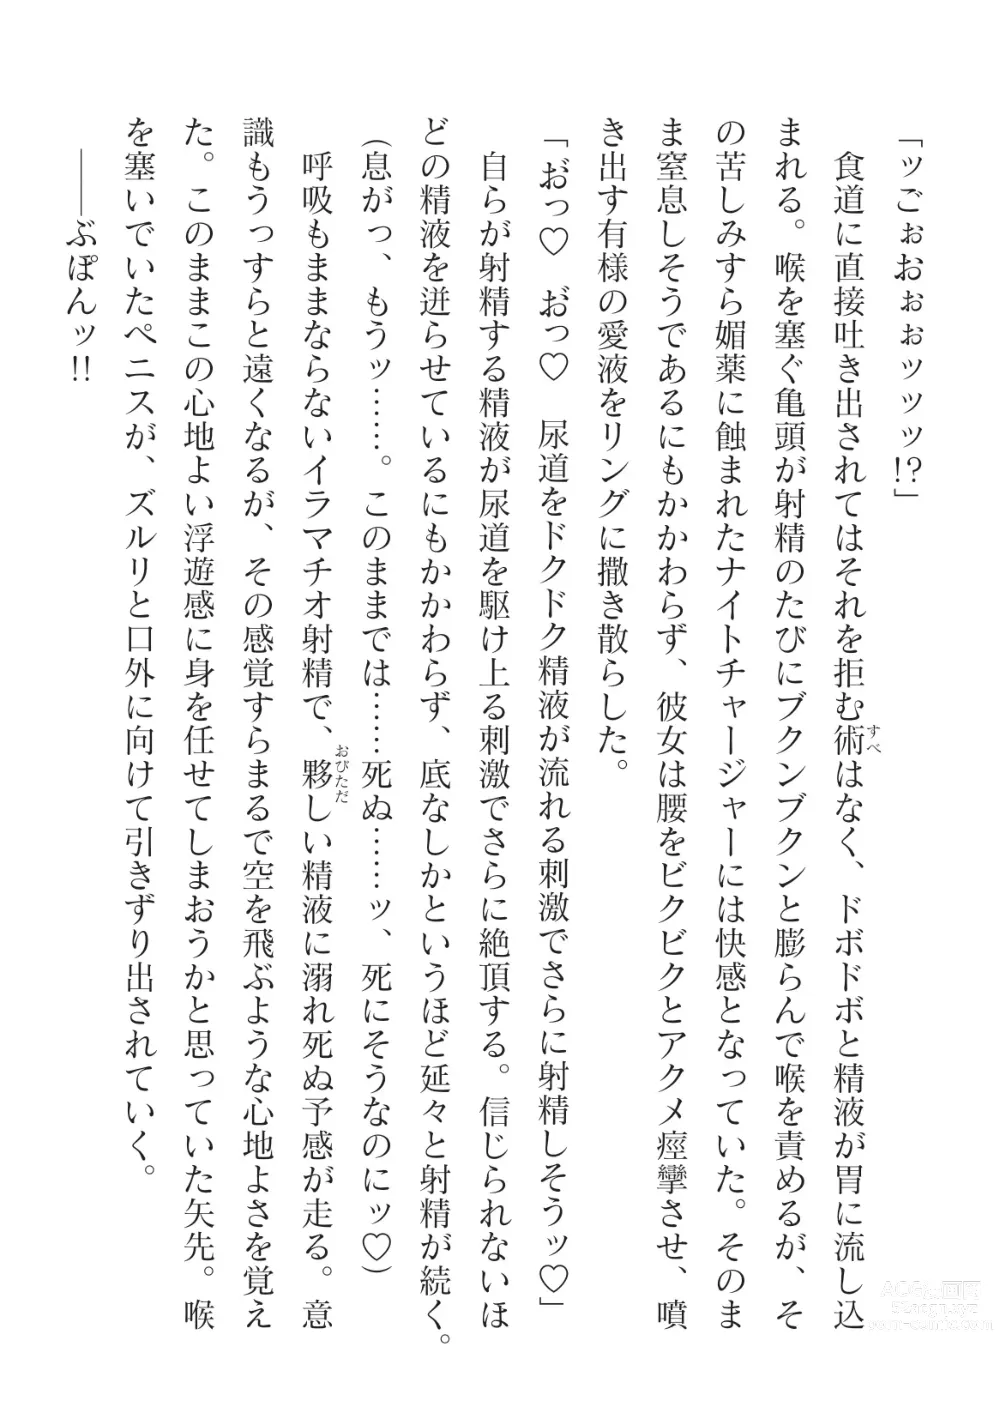 「ッごぉおぉぉッッッ!?」
食道に直接吐き出されてはそれを拒む術はなく、ドボドボと精液が胃に流し込
すべ
まれる。喉を塞ぐ亀頭が射精のたびにブクンブクンと膨らんで喉を責めるが、そ
の苦しみすら媚薬に蝕まれたナイトチャージャーには快感となっていた。そのま
ま窒息しそうであるにもかかわらず、彼女は腰をビクビクとアクメ痙攣させ、噴
き出す有様の愛液をリングに撒き散らした。
「お゛っ♡　お゛っ♡　尿道をドクドク精液が流れる刺激でさらに射精しそうッ♡」
自らが射精する精液が尿道を駆け上る刺激でさらに絶頂する。信じられないほ
どの精液を迸らせているにもかかわらず、底なしかというほど延々と射精が続く。
（息がっ、もうッ……。このままでは……死ぬ……ッ、死にそうなのにッ♡）
呼吸もままならないイラマチオ射精で、夥しい精液に溺れ死ぬ予感が走る。意
おびただ
識もうっすらと遠くなるが、その感覚すらまるで空を飛ぶような心地よさを覚え
た。このままこの心地よい浮遊感に身を任せてしまおうかと思っていた矢先。喉
を塞いでいたペニスが、ズルリと口外に向けて引きずり出されていく。
――ぶぽんッ!!